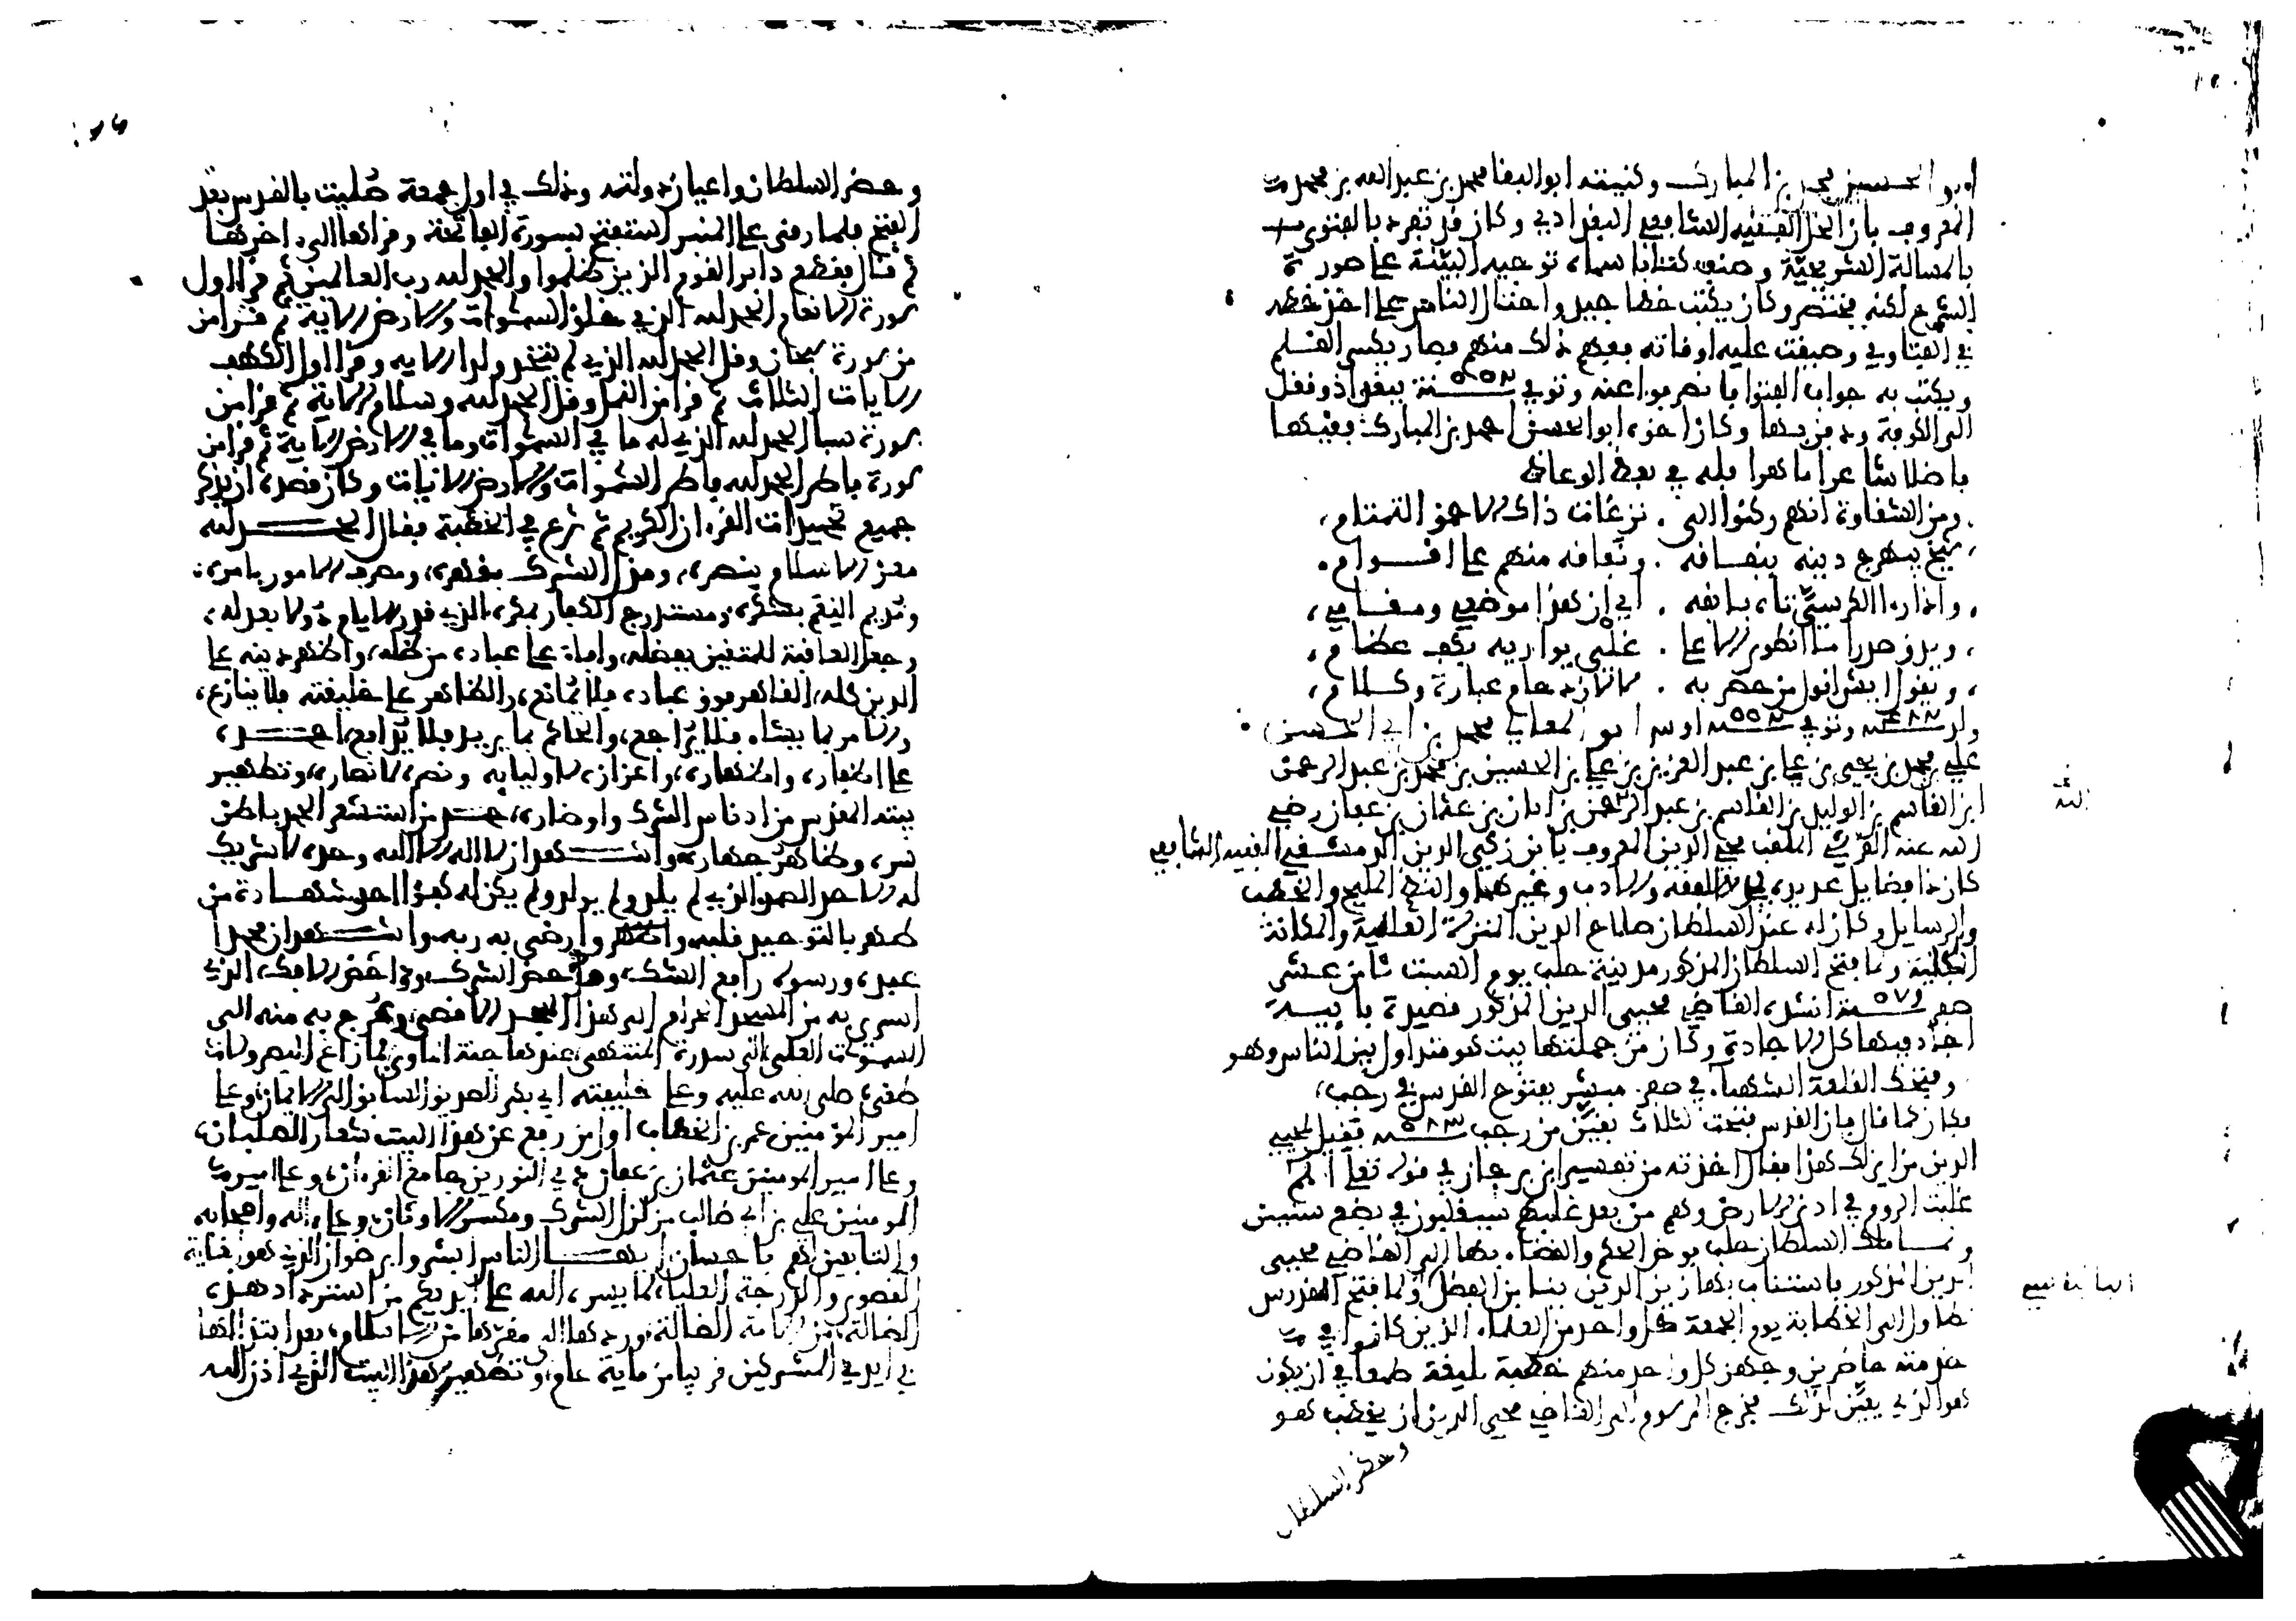 ابو الحسين محمد بن المبارك وكنيته ابو البقا محمد بن عبد الله بن محمد
المعروف بابن الخل الفقيه الشافعي البغدادي وكان قد تفرد بالفتوى
بالمسالة السريجية وصنف كتابا سماه توجيه التنبيه على صورة
الشرح لكنه مختصر وكان يكتب خطا جيدا واحتال الناس على اخذ خطه
في الفتاوي وضيقت عليه اوقاته ففهم ذلك منهم فصار يكسر القلم
ويكتب به جواب الفتوا فانصرفوا عنه وتوفي سنة ٥٥٢ ببغداد ونقل
الى الكوفة ودفن بها وكان اخوه ابو الحسن احمد بن المبارك فقيها
فاضلا شاعرا ماهرا فمنه في بعض الوعاظ
ومن الشقاوة انهم ركنوا الى . نزغات ذاك الاحمق التمتام
شيخ يبهرج دينه بنفاقه . ونفاقه منهم على اقوام
واذا راى الكرسي تاه بانفه . اي ان هذا موضعي ومقامي
ويدق صدرا ما انطوى الا على . غل يواريه بكف عظام
ويقول ايش اقول من حصر به . لا لازدحام عبارة وكلام
ولد سنة ٤٨٢ وتوفي سنة ٥٥٢ ابو المعالي محمد بن ابي الحسن
علي بن محمد بن يحيى بن علي بن عبد العزيز بن علي بن الحسين بن محمد بن عبد الرحمن
ابن القاسم بن الوليد بن القاسم بن عبد الرحمن بن ابان بن عثمان بن عفان رضي
الله عنه القرشي الملقب محي الدين المعروف بابن زكي الدين الدمشقي الفقيه الشافعي
كان ذا فضايل عديدة من الفقه والادب وغيرهما والنظم المليح والخطب
والرسايل وكان له عند السلطان صلاح الدين المنزلة العالية والمكانة
ولما فتح السلطان المذكور مدينة حلب يوم السبت ثامن عشر
صفر سنة ٥٧٩ انشده القاضي محيي الدين المذكور قصيدة بائية
اجاد فيها كل الاجادة وكان من جملتها بيت هو متداول بين الناس وهو
وفتحك القلعة الشهباء في صفر مبشر بفتوح القدس في رجب
فكان كما قال فان القدس فتحت لثلاث بقين من رجب سنة ٥٨٣ فقيل لمحيي
الدين من اين لك هذا فقال اخذته من تفسير ابن برجان في قوله تعلى الم
غلبت الروم في ادنى الارض وهم من بعد غلبهم سيغلبون في بضع سنين
ولما ملك السلطان حلب فوض الحكم والقضاء بها الى القاضي محيي
الدين المذكور فاستناب بها زين الدين بنا بن الفضل ولما فتح القدس
تطاول الى الخطابة يوم الجمعة كل واحد من العلماء الذين كانوا في
خدمته حاضرين وجهز كل واحد منهم خطبة بليغة طمعا في ان يكون
هو الذي يعين لذلك فخرج المرسوم الى القاضي محيي الدين ان يخطب هو
وحضر السلطان
وحضر السلطان واعيان دولته وذلك في اول جمعة صليت بالقدس بعد
الفتح فلما رقى على المنبر استفتح بسورة الفاتحة وقراها الى اخرها
ثم قال فقطع دابر القوم الذين ظلموا والحمد لله رب العالمين ثم قرا اول
سورة الانعام الحمد لله الذي خلق السموات والارض الاية ثم قرا من
من سورة سبحان وقل الحمد لله الذي لم يتخذ ولدا الاية وقرا اول الكهف
الايات الثلاث ثم قرا من النمل وقل الحمد لله وسلام الاية ثم قرا من
سورة سبا الحمد لله الذي له ما في السموات وما في الارض الاية ثم قرا من
سورة فاطر الحمد لله فاطر السموات والارض الايات وكان قصده ان يذكر
جميع تحميدات القرءان الكريم ثم شرع في الخطبة فقال الحمد لله
معز الاسلام بنصره ومذل الشرك بقهره ومصرف الامور بامره
ومديم النعم بشكره ومستدرج الكفار بمكره الذي قدر الايام دولا بعدله
وجعل العاقبة للمتقين بفضله وافاء على عباده من ظله واظهر دينه على
الدين كله القاهر فوق عباده فلا يمانع والظاهر على خليقته فلا ينازع
والامر بما يشاء فلا يراجع والحاكم بما يريد فلا يدافع احمده
على اظفاره واظهاره واعزازه لاوليايه ونصره لانصاره وتطهير
بيته المقدس من ادناس الشرك واوضاره حمد من استشعر الحمد باطن
سره وظاهر جهاره واشهد ان لا اله الا الله وحده لا شريك
له الاحد الصمد الذي لم يلد ولم يولد ولم يكن له كفؤا احد شهادة من
طهر بالتوحيد قلبه وارضى به ربه واشهد ان محمدا
عبده ورسوله رافع الشك وداحض الشرك وداحض الافك الذي
اسري به من المسجد الحرام الى هذا المسجد الاقصى وعرج به منه الى
السموات العلى الى سدرة المنتهى عندها جنة الماوى ما زاغ البصر وما
طغى صلى الله عليه وعلى خليفته ابي بكر الصديق السابق الى الايمان وعلى
امير المومنين عمر بن الخطاب اول من رفع عن هذا البيت شعار الصلبان
وعلى امير المومنين عثمان بن عفان ذي النورين جامع القرءان وعلى امير
المومنين علي بن ابي طالب مزلزل الشرك ومكسر الاوثان وعلى اله واصحابه
والتابعين لهم باحسان ايها الناس ابشروا برضوان الذي هو الغاية
القصوى والدرجة العليا لما يسره الله على ايديكم من استرداد هذه
الضالة من الامة الضالة وردها الى مقرها من الاسلام بعد ابتذالها
في ايدي المشركين قريبا من ماية عام وتطهير هذا البيت الذي اذن الله